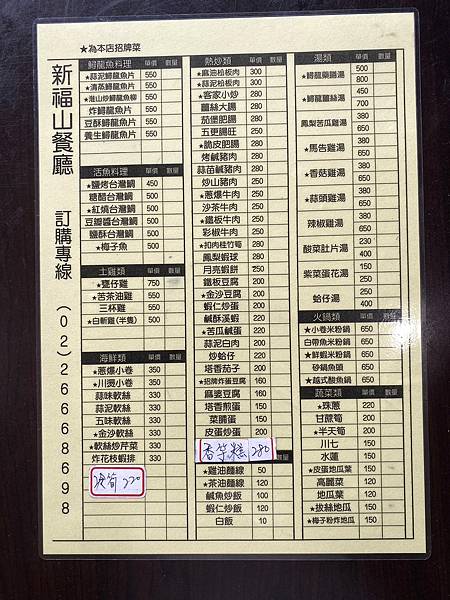 ★為本店招牌菜
新福山餐廳 訂購專線(02)26668698
鱘龍魚料理 單價 數量
★蒜泥鱘龍魚片 550
★清蒸鱘龍魚片 550
★淮山炒鱘龍魚柳 550
炸鱘龍魚片 550
豆酥鱘龍魚片 550
養生鱘龍魚片 550
活魚料理 單價 數量
★鹽烤台灣鯛 450
糖醋台灣鯛 500
★紅燒台灣鯛 500
豆瓣醬台灣鯛 500
鹽酥台灣鯛 500
★梅子魚 500
土雞類 單價 數量
★甕仔雞 750
★苦茶油雞 550
三杯雞 550
★白斬雞(半隻) 500
海鮮類 單價 數量
★蔥爆小卷 350
★川燙小卷 350
蒜味軟絲 350
蒜泥軟絲 350
五味軟絲 350
★金沙軟絲 350
★軟絲炒芹菜 350
炸花枝蝦排 350
涼筍 220
熱炒類 單價 數量
★麻油松板肉 300
★蒜泥松板肉 300
★客家小炒 280
薑絲大腸 280
茄堡肥腸 280
五更腸旺 280
★脆皮肥腸 280
烤鹹豬肉 280
蒜苗鹹豬肉 280
炒山豬肉 280
★蔥爆牛肉 280
沙茶牛肉 280
★鐵板牛肉 280
彩椒牛肉 280
★扣肉桂竹筍 280
鳳梨蝦球 280
月亮蝦餅 250
鐵板豆腐 200
★金沙豆腐 200
蝦仁炒蛋 200
鹹酥溪蝦 200
★苦瓜鹹蛋 200
蒜泥白肉 200
炒蛤仔 200
塔香茄子 200
★招牌炸蛋豆腐 160
麻婆豆腐 160
塔香煎蛋 150
菜脯蛋 150
皮蛋炒蛋 200
香芋糕 280
數量
★雞油麵線 50
★茶油麵線 120
鹹魚炒飯 100
蝦仁炒飯 120
白飯 10
湯類 單價 數量
★鱘龍藥膳湯 500 800
★鱘龍薑絲湯 450 700
鳳梨苦瓜雞湯 380 650
★馬告雞湯 380 650
★香菇雞湯 380 650
★蒜頭雞湯 380 650
辣椒雞湯 380 650
酸菜肚片湯 230 400
紫菜蛋花湯 150 250
蛤仔湯 250 400
火鍋類 單價 數量
★小卷米粉鍋 650
白帶魚米粉鍋 650
★鮮蝦米粉鍋 650
砂鍋魚頭 650
★越式酸魚鍋 650
蔬菜類 單價 數量
★珠蔥 220
甘蔗筍 200
★半天筍 200
川七 150
水蓮 150
★皮蛋地瓜葉 150
高麗菜 150
地瓜葉 150
★拔絲地瓜 150
★梅子粉炸地瓜 150